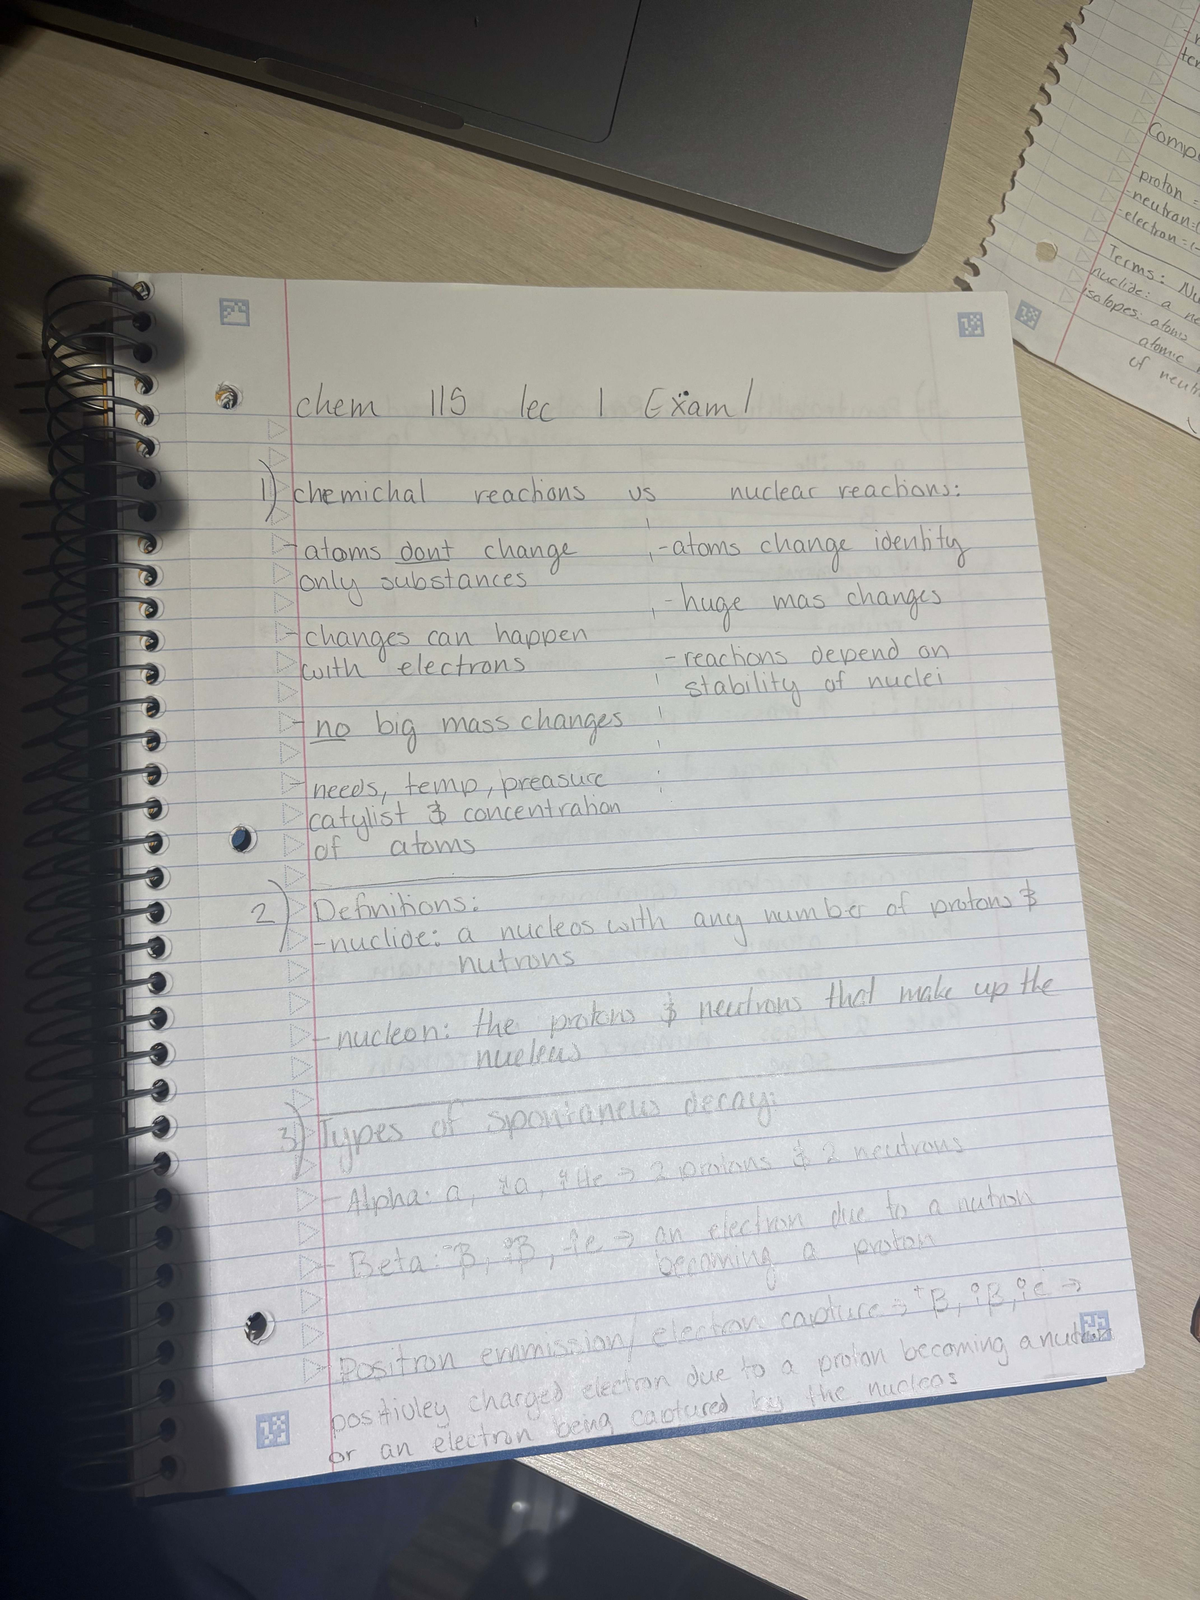 chem 115 lec 1 Exam 1
1) chemichal reactions vs nuclear reactions:
- atoms dont change
only substances
- changes can happen
with electrons
- no big mass changes
- needs, temp, preasure
catylist & concentration
of atoms
- atoms change identity
- huge mas changes
- reactions depend on
stability of nuclei
2) Definitions:
- nuclide: a nucleos with any number of protons &
nutrons
- nucleon: the protons & neutrons that make up the
nucleus
3) Types of spontaneus decay:
- Alpha: α, ⁴₂α, ⁴₂He → 2 protons & 2 neutrons
- Beta: ⁻β, ⁰₋₁β, ⁰₋₁e → an electron due to a nutron
becoming a proton
- Positron emmission/electron capture → ⁺β, ⁰₁β, ⁰₁e →
positivley charged electron due to a proton becoming a nutron
or an electron being captured by the nucleos
Comp
- proton =
- neutron =
- electron =
Terms: Nu
nuclide: a ne
isotopes: atoms
atomic
of neut